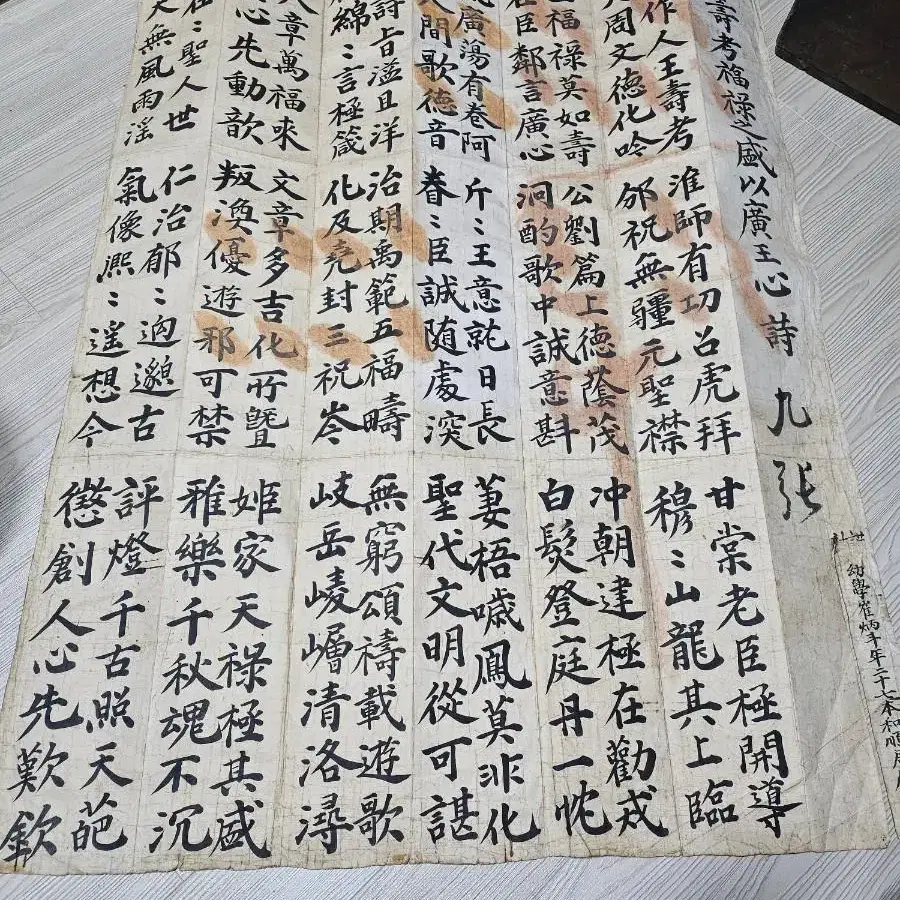 壽考福祿之盛以廣王心詩 九張
幼學崔炳斗年二十七本和順居
作人王壽考
周文德化吟
福祿莫如壽
臣鄰言廣心
廣蕩有卷阿
人間歌德音
詩旨溢且洋
綿〻言極箴
八章萬福來
心先動歆
〻聖人世
天無風雨淫
淮師有功召虎拜
邠祝無疆元聖襟
公劉篇上德蔭茂
泂酌歌中誠意斟
斤〻王意就日長
眷〻臣誠随處深
治期禹範五福疇
化及堯封三祝岑
文章多吉化所曁
叛渙優遊邪可禁
仁治郁〻迥邈古
氣像熙〻遙想今
甘棠老臣極開導
穆〻山龍其上臨
冲朝建極在勸戒
白髮登庭丹一忱
萋梧噦鳳莫非化
聖代文明從可諶
無窮頌禱載遊歌
岐岳崚嶒清洛潯
姬家天祿極其盛
雅樂千秋魂不沉
評燈千古照天葩
懲創人心先歎欽